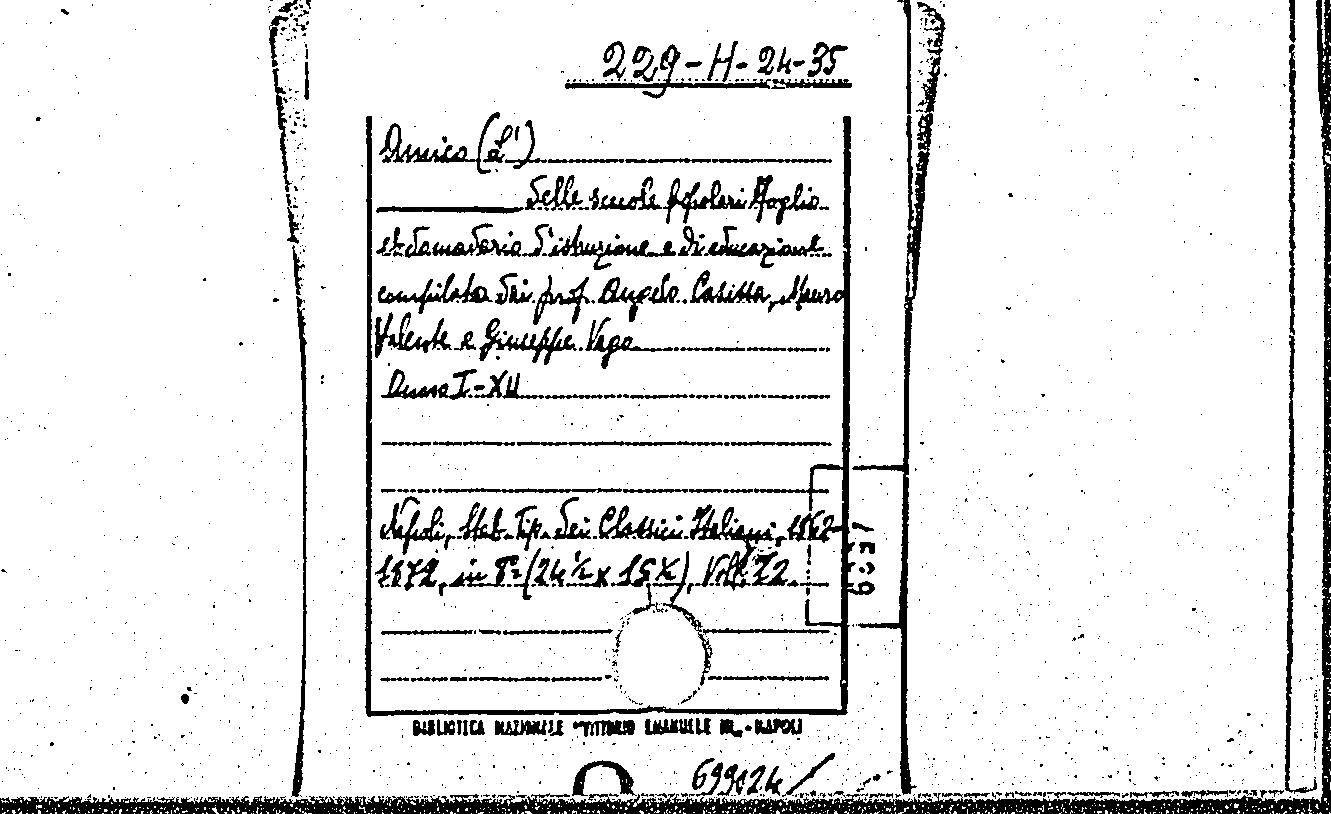 229-H-24-35
Amico (L')
delle scuole popolari Foglio
ebdomadario d'istruzione e di educazione
compilato dai prof. Angelo Casissa, Mauro
Valente e Giuseppe Vago
Anno I-XII
Napoli, Stab. Tip. dei Classici Italiani, 1862-
1872, in 8º (24½ x 15½), Voll.
BIBLIOTECA NAZIONALE "VITTORIO EMANUELE III" - NAPOLI